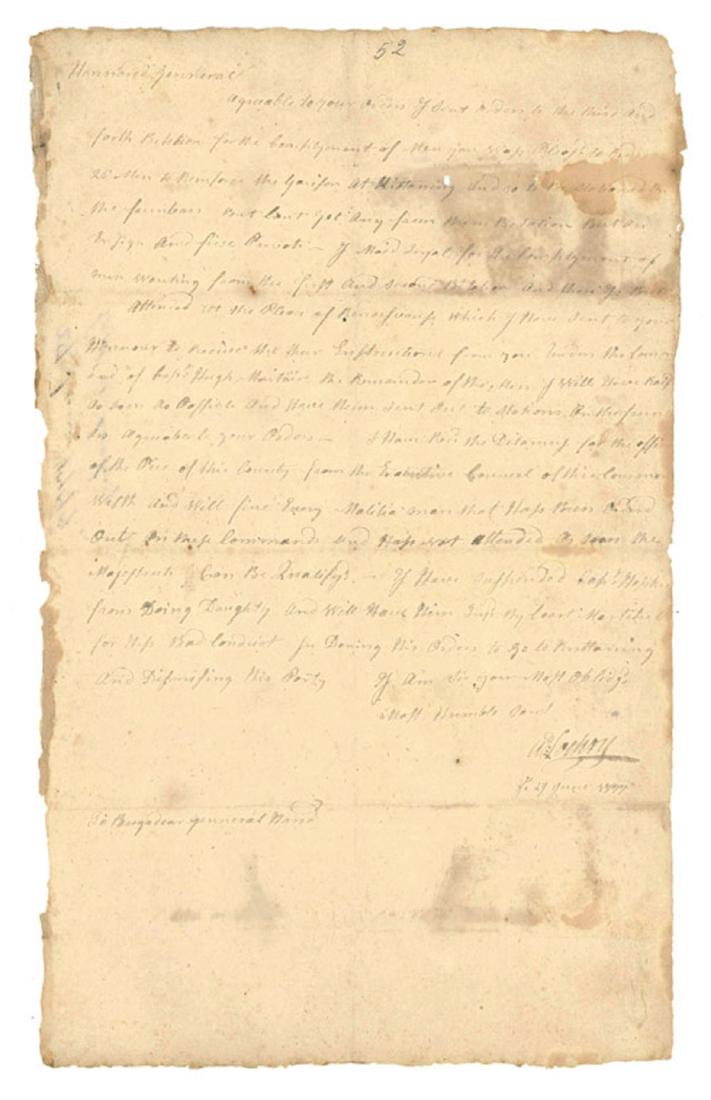 52
Honnored Genneral
Agreable to your Orders I Sent orders to the third and
forth Battlion for the Compligment of Men you Wass Pleas'd to
25 Men to Reinforce the Garison At Kittaning And so to be Stationed
the fronteers But Cant Get Any from them Battalion But An
Insign And five Privats — I Maid for the Compligment of
men wanting from the first And Second And
Attended At the Place of Which I Have Sent to your
Honnour to Receive the thar Instructions from you Under the Com
and of Capt. Hugh the Remainder of the Men I Will Have
As Soon As Possible And Have them Sent Out to Stations On the
Agreable to your Orders — I Have the for the
of the of this County from the Executive Councel of this Common
Welth And Will fine Every Militia man that Hass Been Ordred
Out On these Commands And Hass not Attended As Soon the
Majestrats Can Be Qualify'd — I Have Suspended Capt.
from Doing Daughty And Will Have Him by Court Martiled
for Hiss Bad Conduct In His Orders to go to Kittaning
And Dismissing His Party I Am Sir your Most Oblidg'd
Most Humble Servt
A. Lochry
29 1777
To Brigadear Genneral Hand